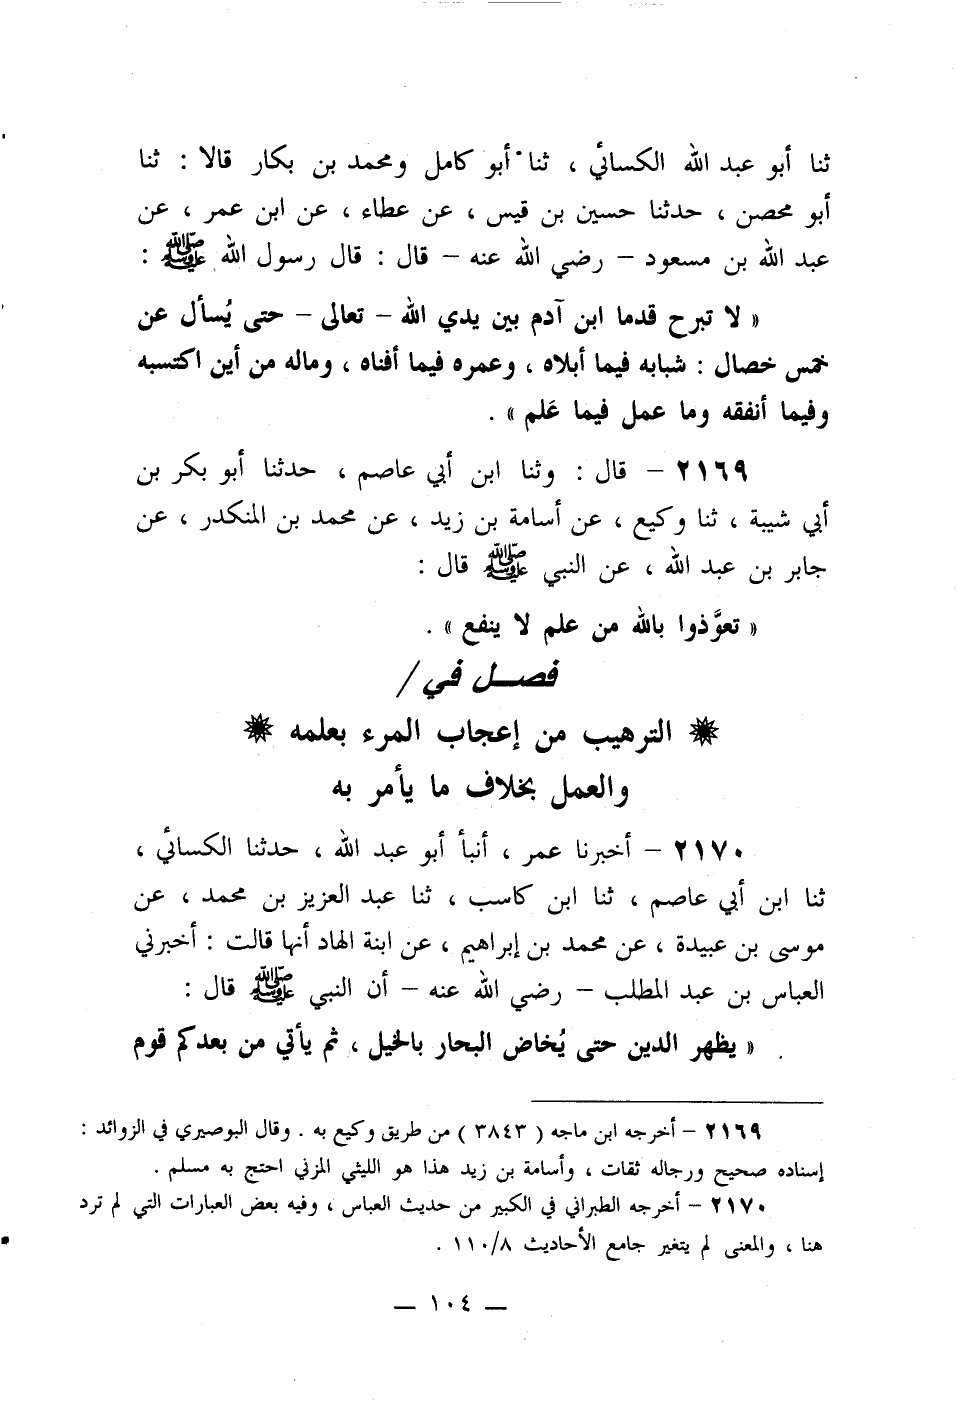 ثنا أبو عبد الله الكسائي ، ثنا أبو كامل ومحمد بن بكار قالا : ثنا
أبو محصن ، حدثنا حسين بن قيس ، عن عطاء ، عن ابن عمر ، عن
عبد الله بن مسعود – رضي الله عنه – قال : قال رسول الله ﷺ :
« لا تبرح قدما ابن آدم بين يدي الله – تعالى – حتى يُسأل عن
خمس خصال : شبابه فيما أبلاه ، وعمره فيما أفناه ، وماله من أين اكتسبه
وفيما أنفقه وما عمل فيما عَلم » .
٢١٦٩ – قال : وثنا ابن أبي عاصم ، حدثنا أبو بكر بن
أبي شيبة ، ثنا وكيع ، عن أسامة بن زيد ، عن محمد بن المنكدر ، عن
جابر بن عبد الله ، عن النبي ﷺ قال :
« تعوَّذوا بالله من علم لا ينفع » .
فصـــل في /
✹ الترهيب من إعجاب المرء بعلمه ✹
والعمل بخلاف ما يأمر به
٢١٧٠ – أخبرنا عمر ، أنبأ أبو عبد الله ، حدثنا الكسائي ،
ثنا ابن أبي عاصم ، ثنا ابن كاسب ، ثنا عبد العزيز بن محمد ، عن
موسى بن عبيدة ، عن محمد بن إبراهيم ، عن ابنة الهاد أنها قالت : أخبرني
العباس بن عبد المطلب – رضي الله عنه – أن النبي ﷺ قال :
« يظهر الدين حتى يُخاض البحار بالخيل ، ثم يأتي من بعدكم قوم
٢١٦٩ – أخرجه ابن ماجه ( ٣٨٤٣ ) من طريق وكيع به . وقال البوصيري في الزوائد :
إسناده صحيح ورجاله ثقات ، وأسامة بن زيد هذا هو الليثي المزني احتج به مسلم .
٢١٧٠ – أخرجه الطبراني في الكبير من حديث العباس ، وفيه بعض العبارات التي لم ترد
هنا ، والمعنى لم يتغير جامع الأحاديث ١١٠/٨ .
— ١٠٤ —